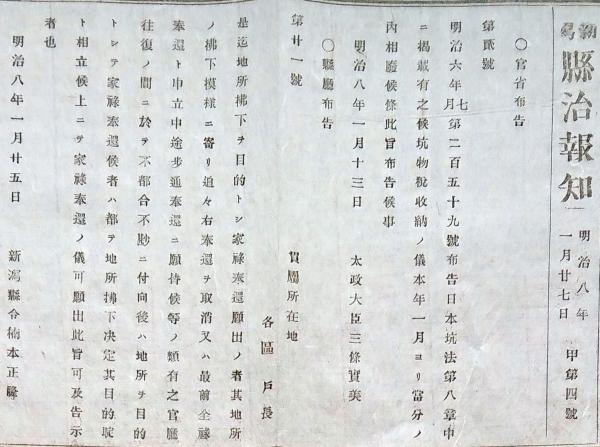 新潟
縣治報知
明治八年
一月廿七日
甲第四號
〇官省布告
第貳號
明治六年七月第二百五十九號布告日本坑法第八章中
ニ掲載有之候坑物税收納ノ儀本年一月ヨリ當分ノ
內相廢候條此旨布告候事
明治八年一月十三日
太政大臣三條實美
〇縣廳布告
第廿一號
貫屬所在地
各區戶長
是迄地所拂下ヲ目的トシ家祿奉還願出ノ者其地所
ノ拂下模樣ニ寄リ追々右奉還ヲ取消又ハ最前全祿
奉還ト申立中途步通奉還ニ願持候等ノ類有之官廳
往復ノ間ニ於テ不都合不尠ニ付向後ハ地所ヲ目的
トシテ家祿奉還候者ハ都テ地所拂下决定其目的聢
ト相立候上ニテ家祿奉還ノ儀可願出此旨可及告示
者也
明治八年一月廿五日
新潟縣令楠本正隆